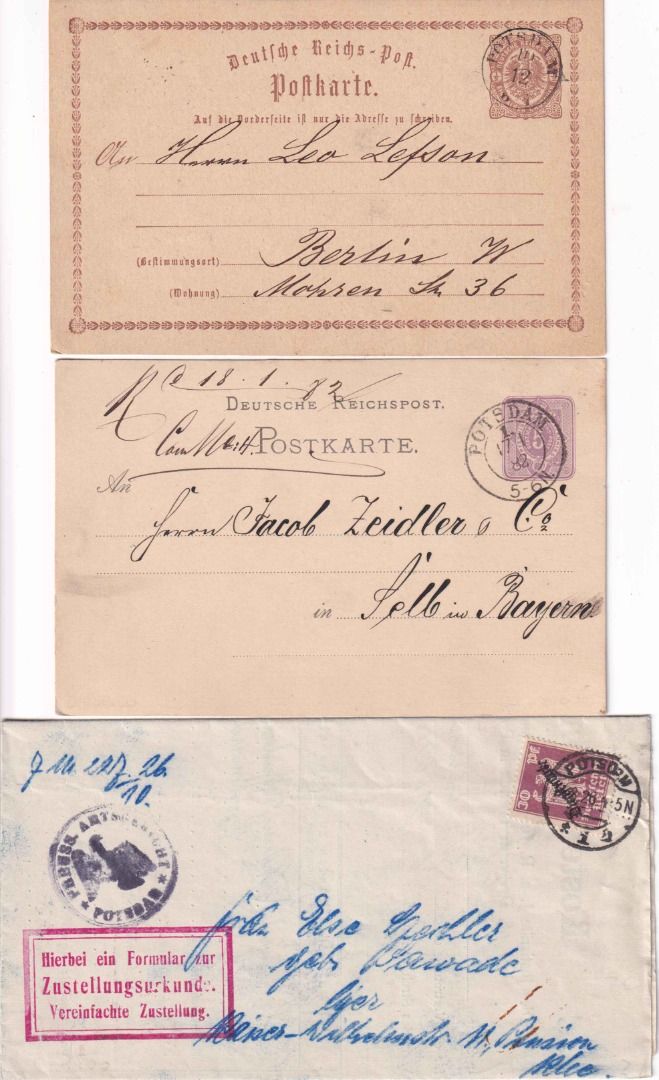 Deutsche Reichs-Post.
Postkarte.
POTSDAM
12
Auf die Vorderseite ist nur die Adresse zu schreiben.
An Herrn Leo Lefson
(Bestimmungsort) Berlin W
(Wohnung) Mohren Str 36
18. 1. 82
DEUTSCHE REICHSPOST.
POSTKARTE.
POTSDAM
1
82
5-6N
An
Herrn Jacob Zeidler & Co
in Selb in Bayern
26
10.
30
POTSDAM
5N
PREUSS. AMTSGERICHT
POTSDAM
Hierbei ein Formular zur
Zustellungsurkunde.
Vereinfachte Zustellung.
Else
geb.
Kaiser-Wilhelmstr 11, Pension